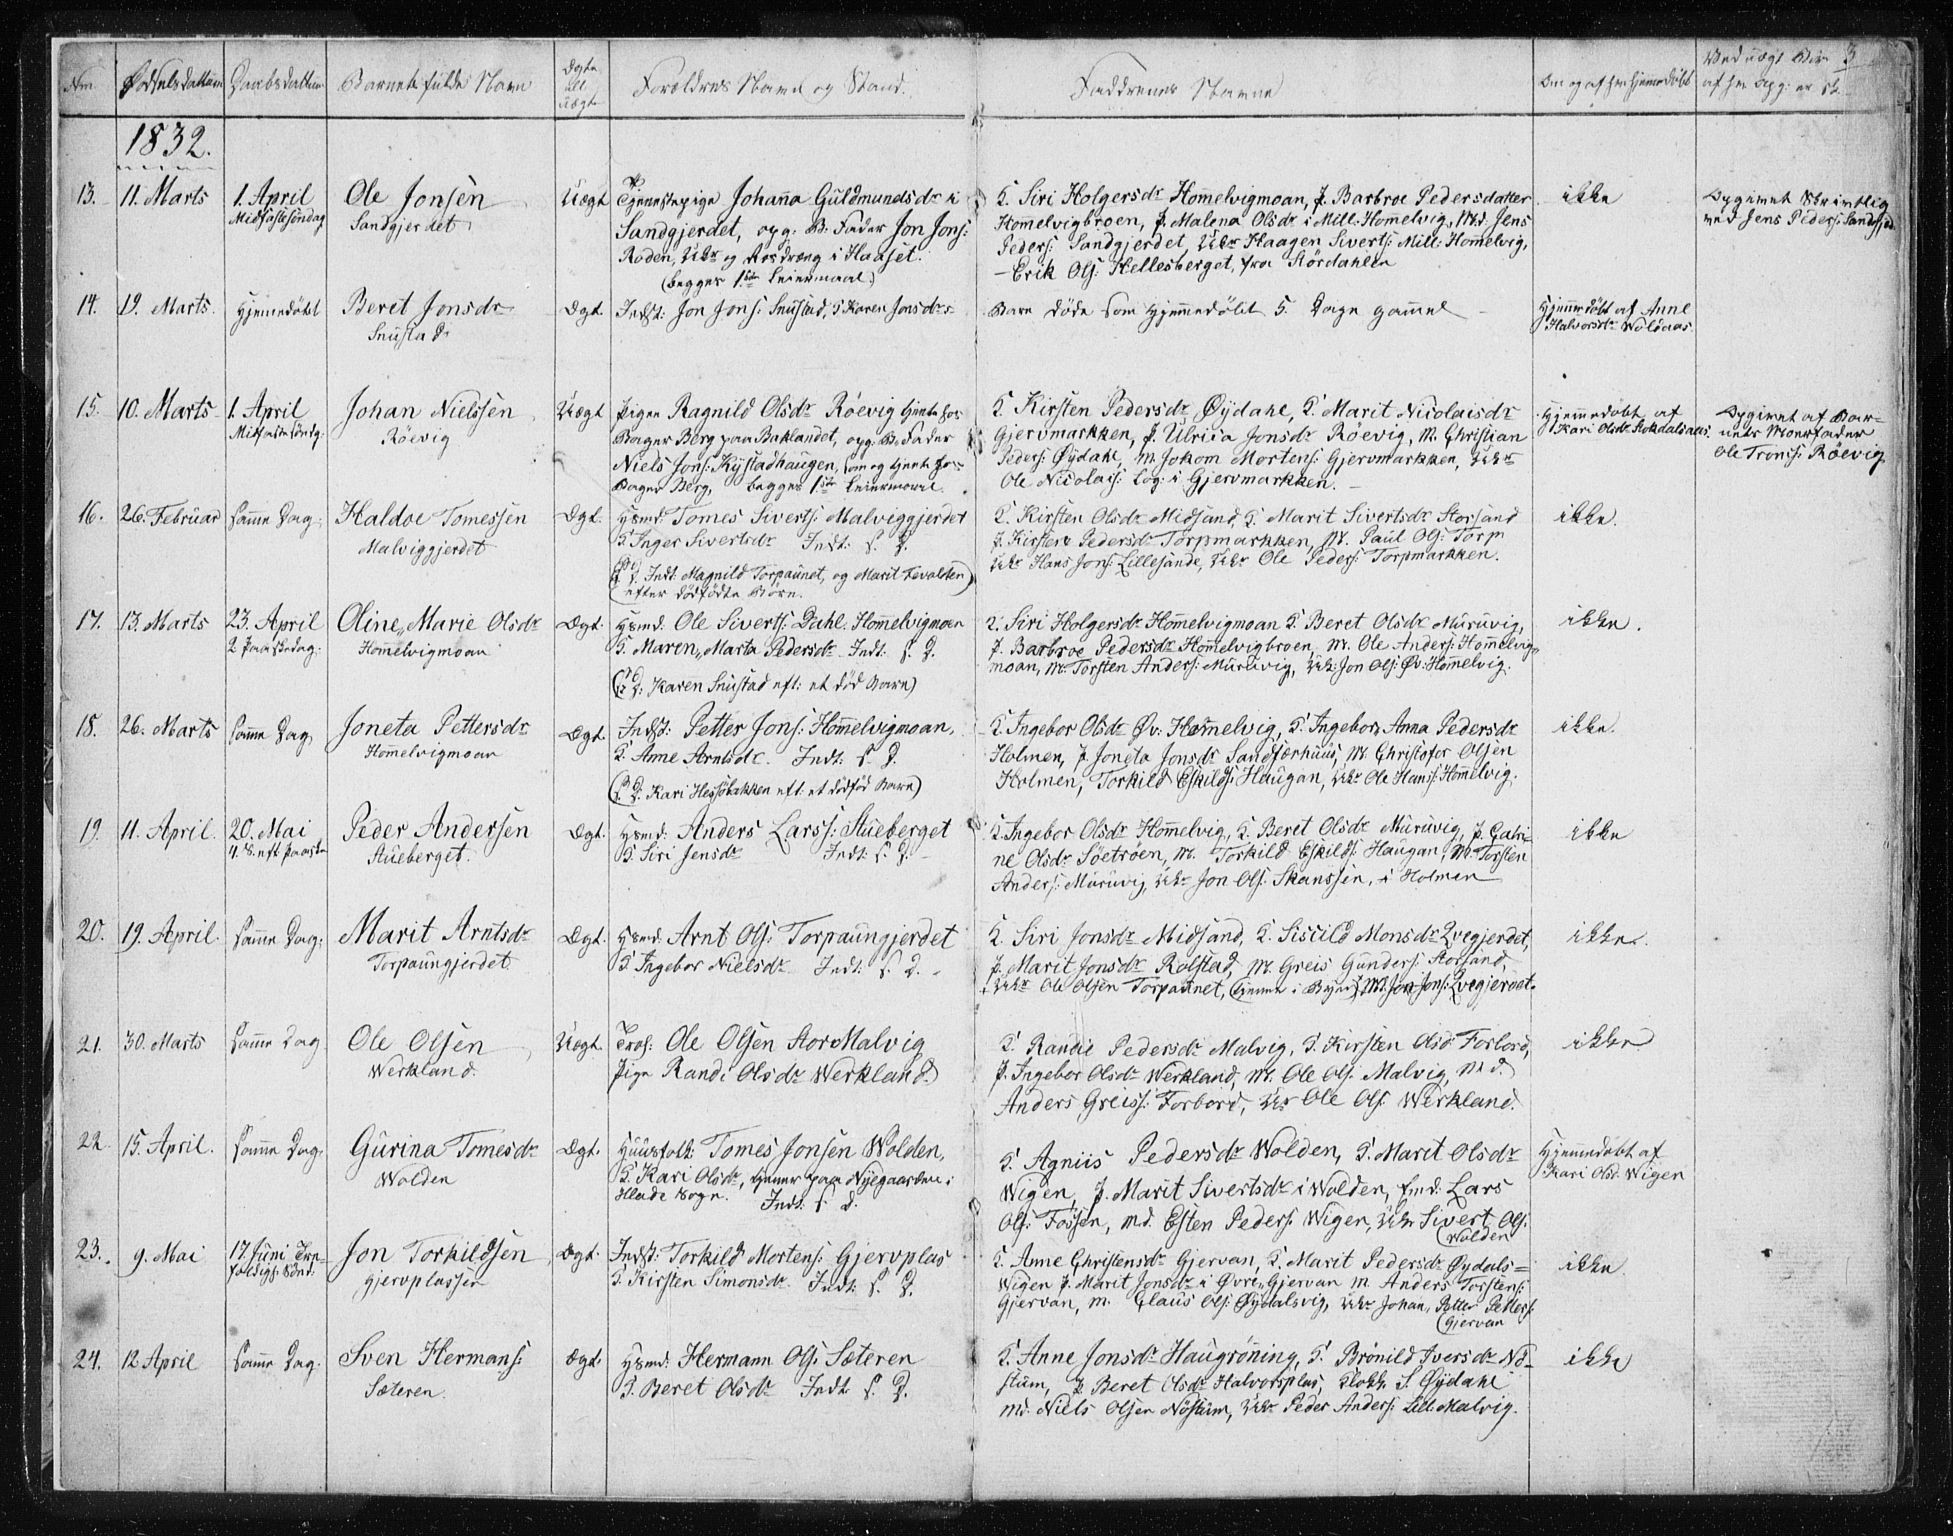 3
Nm. Fødselsdattum Daabsdattum Barnets fulde Navn Ægte ell uægte Forældres Navne og Stand. Faddrenes Navne Om og af hvem hjemmedøbt Ved uægt. Børn af hvem opg: er
1832.
13. 11. Marts 1. April Midfastesöndag Ole Jonsen Sandgjerdet Uægt
Tjenestepige Johanna Guldmundsdr i
Sandgjerdet, opg. B: Fader Jon Jons:
Roden, Uk. og Aasdræng i Haaset.
(begges 1ste Leiermaal.)
K. Siri Holgersdr Hommelvigmoan, P. Barbroe Pedersdatter
Homelvigbroen, P. Malena Olsdr i Mill. Homelvig, Md. Jens
Peders: Sandgjerdet, Uk. Haagen Siverts: Mill: Hommelvig,
Erik Ols: Hellesberget, fra Stördahlen
ikke
Opgivet Skriftlig
ved Jens Peders: Sandgjer
14. 19. Marts. Hjemmedöbt Beret Jonsdr Snustad Ægt.
Indst: Jon Jons: Snustad, K Karen Jonsdr
Barn døde som hjemmedöbt 5 Dage gammel
Hjemmedöbt af Anne
Halvorsdr Woldaas.
15. 10. Marts 1. April Midfastesöndg. Johan Nielssen Röevig Uægt
Pigen Ragnild Olsdr Röevig tjente hos
Bager Berg paa Baklandet, opg. B. Fader
Niels Jons: Kystadhaugen, som og tjente hos
Bager Berg, begges 1ste Leiermaal.
K. Kirsten Pedersdr Øydahl, K. Marit Nicolaisdr
Gjervmarkken, P. Ulrica Jonsdr Röevig, M. Christian
Peders: Øydahl, M Jokom Mortens: Gjervmarkken, Uk.
Ole Nicolais: Log: i Gjervmarkken.
Hjemmedöbt af
Kari Olsdr Stokdalsaas
Opgivet af Bar-
nets Morfader
Ole Trons: Röevig
16. 26. Februar samme Dag. Haldoe Tomessen Malviggjerdet Ægt.
Hsmd: Tomes Siverts: Malviggjerdet
K Inger Sivertsdr Indt: s. D.
(s. D. Indt Magnild Torpaunet, og Marit
efter dödfödte Börn.
K. Kirsten Olsdr Midsand, K. Marit Sivertsdr Storsand
P. Kirsten Pedersdr Torpmarkken, M. Paul Ols: Torp
Uk. Hans Jons: Lillesande, Uk. Ole Peders: Torpmarkken.
ikke.
17. 13. Marts 23. April 2 Paaskedag. Oline Marie Olsdr Homelvigmoan Ægt.
Hsmd. Ole Siverts: Dahl: Hommelvigmoan
K. Maren Marta Pedersdr Indt: s. D.
(s. D: Karen Snustad eft: et död Barn)
K. Siri Holgersdr Hommelvigmoan K. Beret Olsdr Muruvig,
P. Barbroe Pedersdr Hommelvigbroen, M. Ole Anders: Hommelvig-
moan, M. Torsten Anders: Muruvig, Uk: Jon Ols: Øv: Homelvig.
ikke.
18. 26. Marts samme Dag Joneta Pettersdr Homelvigmoan Ægt.
Indst: Petter Jons: Hommelvigmoan,
K. Anne Arntsdr. Indt: s. D.
(s. D. Kari Hessöbakken eft: et dödfød Barn)
K. Ingebor Olsdr Øv: Homelvig, K. Ingebor Anna Pedersdr
Holmen, P Joneta Jonsdr Sandfærhuus, M. Christofor Olsen
Holmen, Torkild Eskilds: Haugan, Uk. Ole Hans: Homelvig.
ikke.
19. 11. April. 20. Mai 4. S. eft Paaske Peder Andersen Stueberget. Ægt.
Hsmd: Anders Larss: Stueberget
K Siri Jensdr Indt: s. D.
K. Ingebor Olsdr Hommelvig, K. Beret Olsdr Muruvig, P. Catri-
ne Olsdr Söetröen, M. Torkild Eskilds: Haugan, M. Torsten
Anders: Muruvig, Uk. Jon Ols: Skanssen, i Holmen
ikke
20. 19. April. samme Dag. Marit Arntsdr Torpaungjerdet Ægt.
Hsmd: Arnt Ols: Torpaungjerdet
K. Ingebor Nielsdr Indt: s. D.
K. Siri Jonsdr Midsand, K. Siscild Monsdr Qvegjerdet,
P. Marit Jonsdr Rolstad, M. Greis Gunders: Storsand,
Uk. Ole Olsen Torpaunet, (tjener i Byen) Md. Jon Jons: Qvegjerdet.
ikke.
21. 30. Marts samme Dag Ole Olsen Werkland. Uægt.
Ole Olsen StorMalvig
Pige Randi Olsdr Werkland.
K. Randie Pedersdr Malvig, K. Kirsten Olsd: Forbord,
P. Ingebor Olsdr Werkland, M. Ole Ols: Malvig, Md.
Anders Greiss: Forbord, Uk. Ole Ols: Werkland.
ikke
22. 15. April. samme Dag. Gurina Tomesdr Wolden Ægt.
Huusfolk: Tomes Jonsen Wolden,
K. Kari Olsdr, tjener paa Nyegaarden i
Hlade Sogn. Indt: s. D.
K. Agniis Pedersdr Wolden, K. Marit Olsdr
Wigen, P. Marit Sivertsdr i Wolden, Lars
Ols: Fossen, Md. Esten Peders: Wigen, Uk. Sivert Ols:
(Wolden
Hjemmedöbt af
Kari Olsd. Wigen
23. 9. Mai 17. Juni Tre-foldigh: Sönd. Jon Torkildsen Gjervplassen Ægt.
Indst: Torkild Mortens: Gjervplas
K. Kirsten Simonsdr Indt: s. D.
K. Anne Christensdr Gjervan, K. Marit Pedersdr Øydals-
Wigen P. Marit Jonsdr i Øvre Gjervan M. Anders Torstens:
Gjervan, M. Claus Ols: Øydalsvig, Uk. Johan, Petter Petters:
(Gjervan
ikke.
24. 12 April samme Dag. Sven Hermans: Sæteren. Ægt.
Hsmd: Hermann Ols: Sæteren
K. Beret Olsdr Indt. s. D.
K. Anne Jonsdr Haugröning, K. Brönild Iversdr Nö-
stum, P. Beret Olsdr Halvorsplas, Klokk. S. Øydahl
Md. Niels Olsen Nöstum, Uk. Peder Anders: Lill: Malvig.
ikke